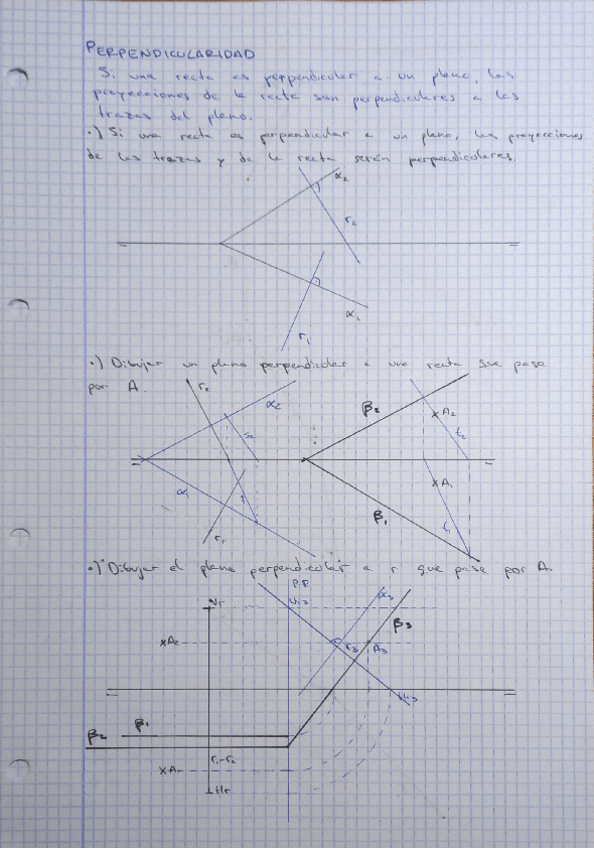 PERPENDICULARIDAD
Si una recta es perpendicular a un plano, las
proyecciones de la recta son perpendiculares a las
trazas del plano.
·) Si una recta es perpendicular a un plano, las proyecciones
de las trazas y de la recta serán perpendiculares.
α₂
r₂
α₁
r₁
·) Dibujar un plano perpendicular a una recta que pase
por A.
r₂
α₂
β₂
A₂
s₂
t₂
α₁
A₁
β₁
t₁
r₁
·) Dibujar el plano perpendicular a r que pase por A.
P.P
Vr
α₃
β₃
A₂
r₃
A₃
β₁
β₂
r₁-r₂
A₁
Hr